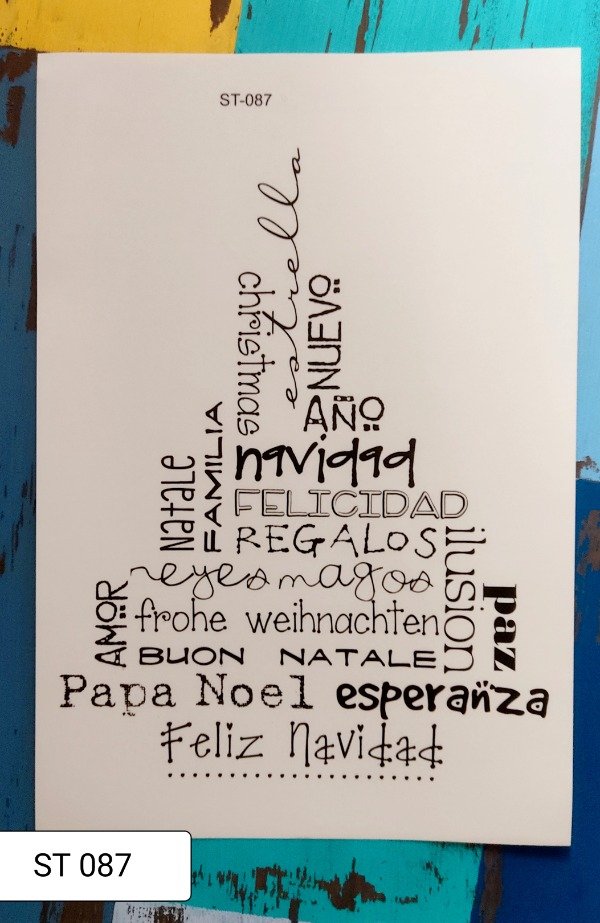 ST-087
estrella
christmas
NUEVO
AÑO
navidad
FAMILIA
Natale
FELICIDAD
REGALOS
ilusion
reyes magos
paz
AMOR
frohe weihnachten
BUON NATALE
Papa Noel esperanza
Feliz Navidad
ST 087